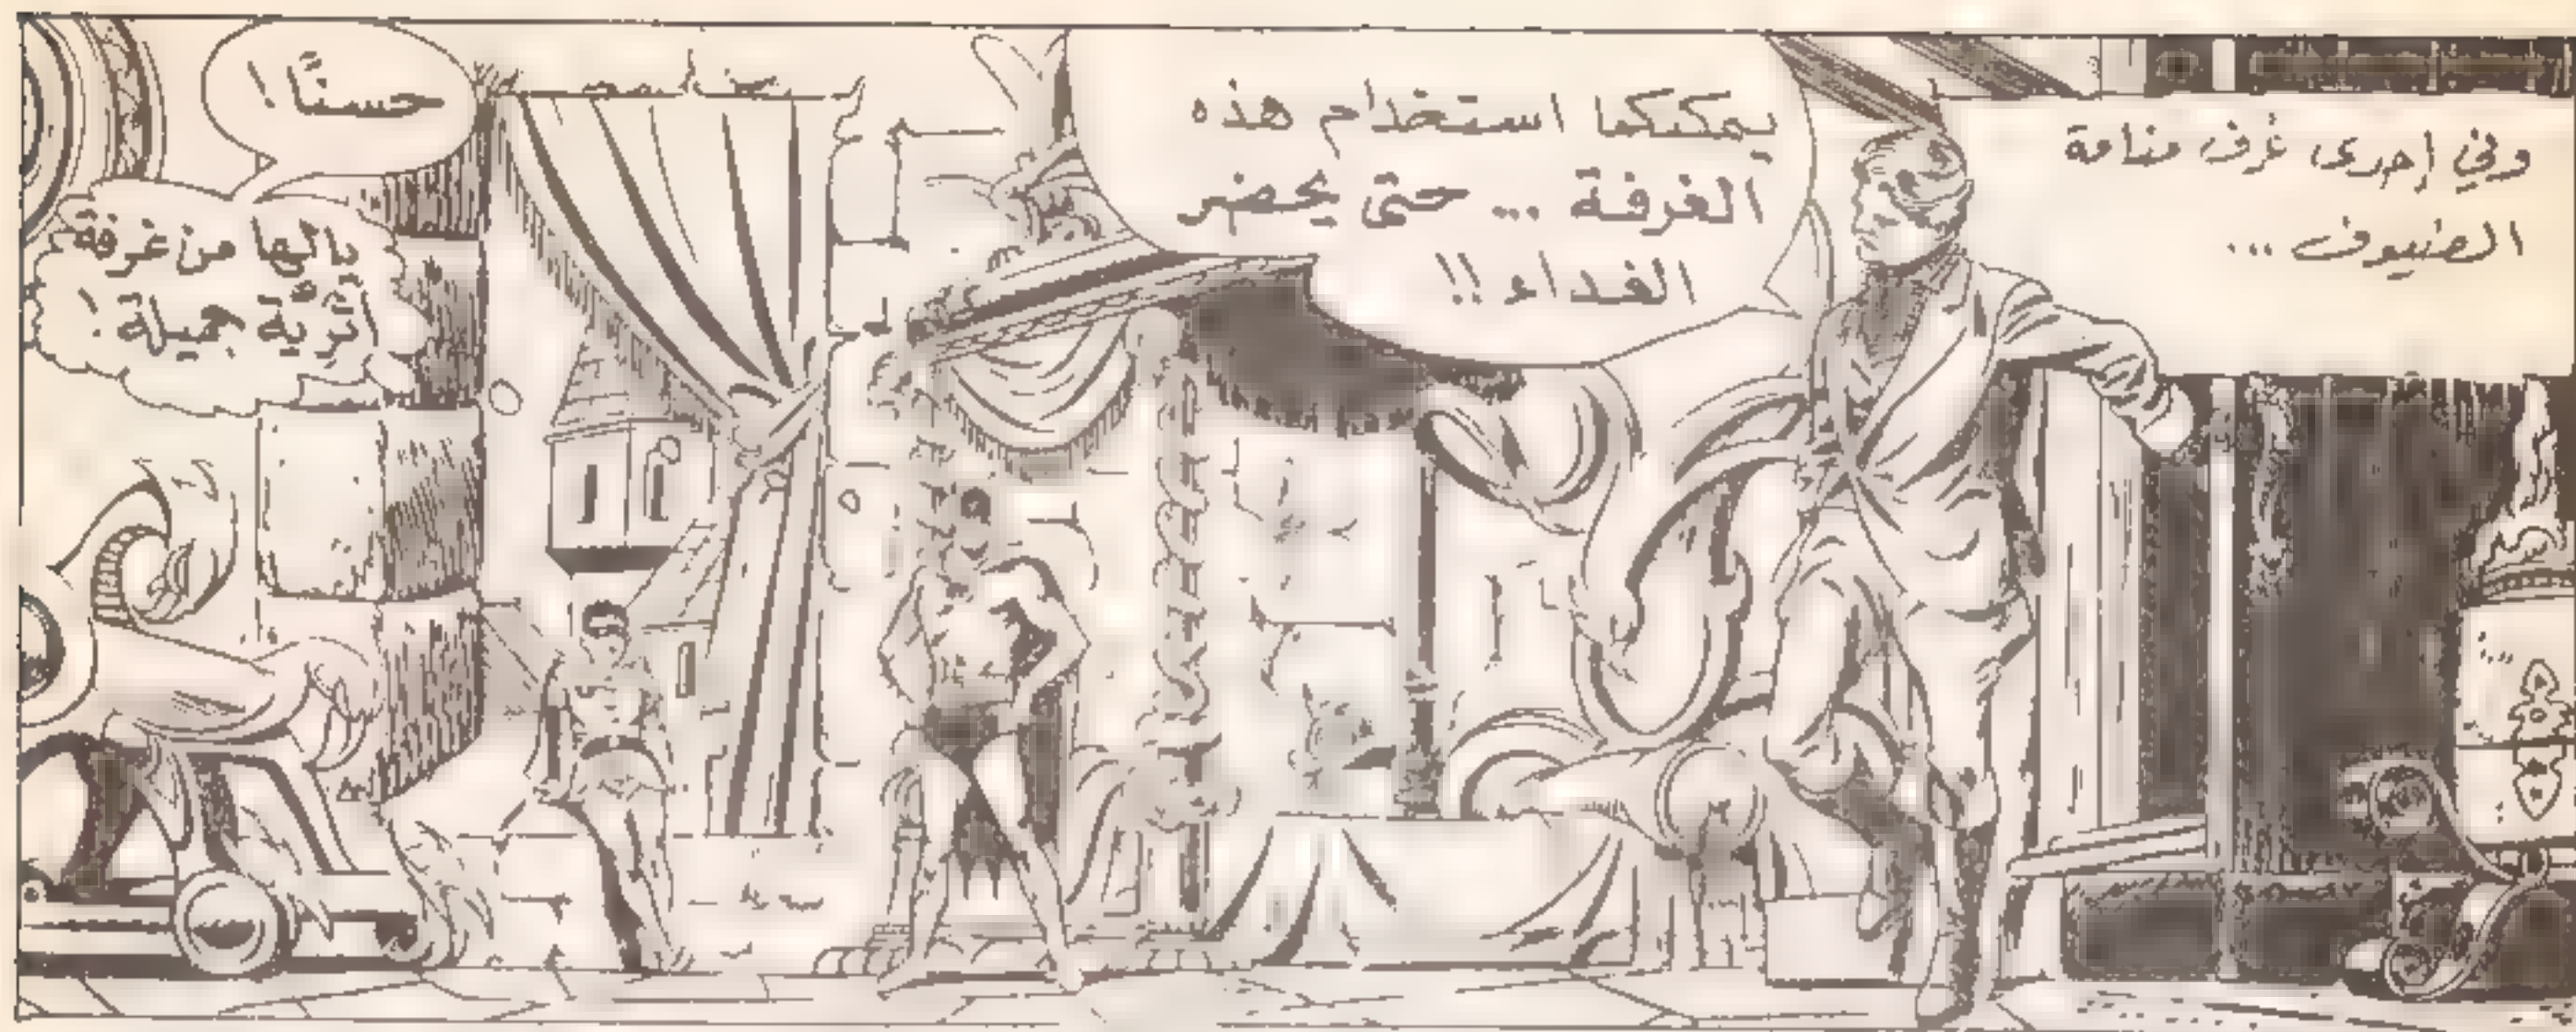 وفي إحدى غرف منامة
الضيوف ...
يمكنكما استخدام هذه
الغرفة ... حتى يحضر
الغداء !!
حسنًا !
يالها من غرفة
أثريّة جميلة !